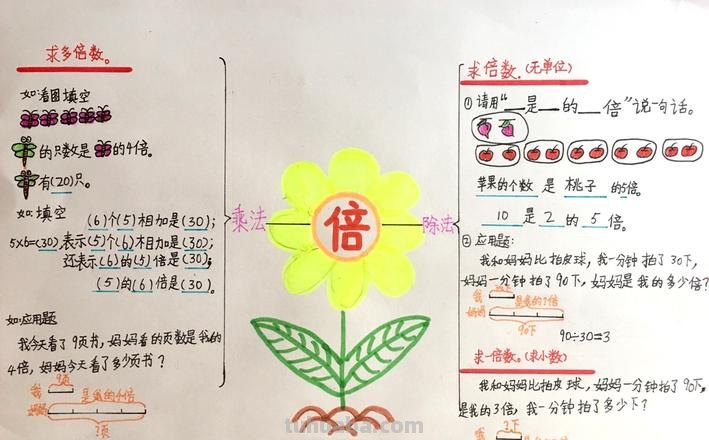 求多倍数。
如:看图填空
的只数是 的4倍。
有(20)只。
如:填空
(6)个(5)相加是(30);
5×6=(30)表示(5)个(6)相加是(30);
还表示(6)的(5)倍是(30);
(5)的(6)倍是(30)。
如:应用题
我今天看了9页书,妈妈看的页数是我的
4倍,妈妈今天看了多少页书?
9页
我 是我的4倍
妈妈
?页
乘法
倍
除法
求倍数。(无单位)
①请用“__是__的__倍”说一句话。
苹果的个数 是 桃子 的5倍。
10 是 2 的 5 倍。
②应用题:
我和妈妈比拍皮球,我一分钟拍了30下,
妈妈一分钟拍了90下,妈妈是我的多少倍?
我 是我的?倍
妈妈
90下
90÷30=3
求一倍数。(求小数)
我和妈妈比拍皮球,妈妈一分钟拍了90下,
是我的3倍,我一分钟拍了多少下?
?下
tuhuaba.com